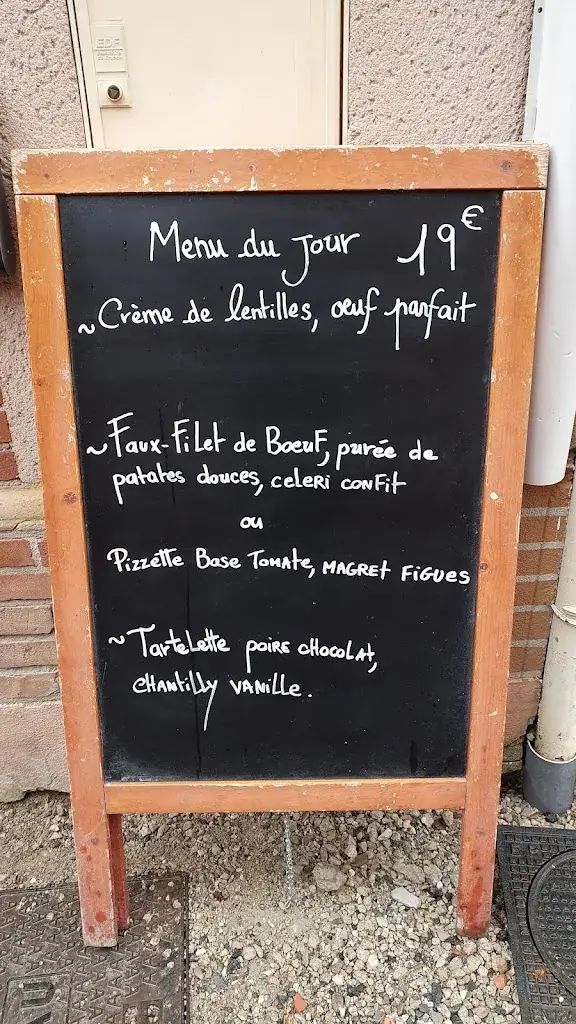 EDF
Menu du jour 19€
~ Crème de lentilles, œuf parfait
~ Faux-Filet de Boeuf, purée de
patates douces, celeri confit
ou
Pizzette Base Tomate, magret figues
~ Tartelette poire chocolat,
chantilly vanille.